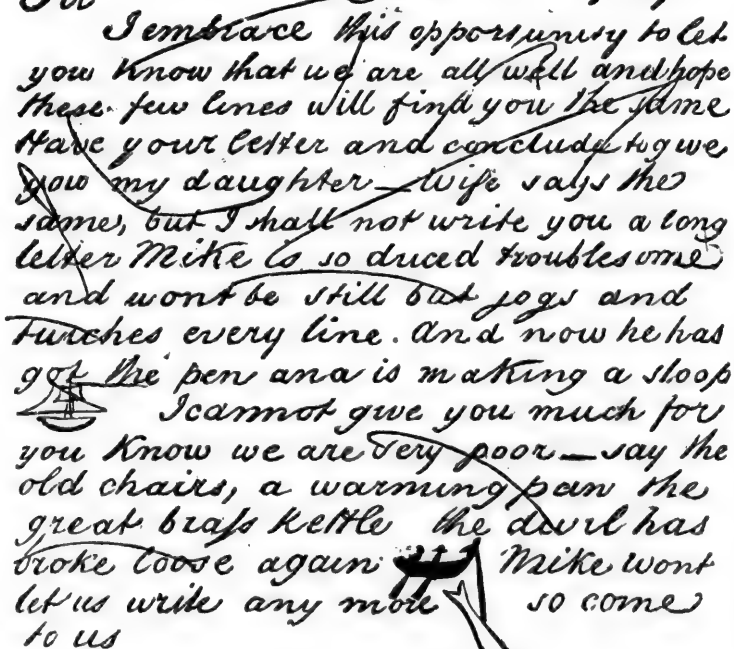 I embrace this opportunity to let
you know that we are all well and hope
these few lines will find you the same
Have your letter and conclude to give
you my daughter — Wife says the
same, but I shall not write you a long
letter Mike is so duced troublesome
and wont be still but jogs and
turches every line. And now he has
got the pen and is making a sloop
I cannot give you much for
you know we are very poor — say the
old chairs, a warming pan the
great brass Kettle the devil has
broke loose again Mike wont
let us write any more so come
to us